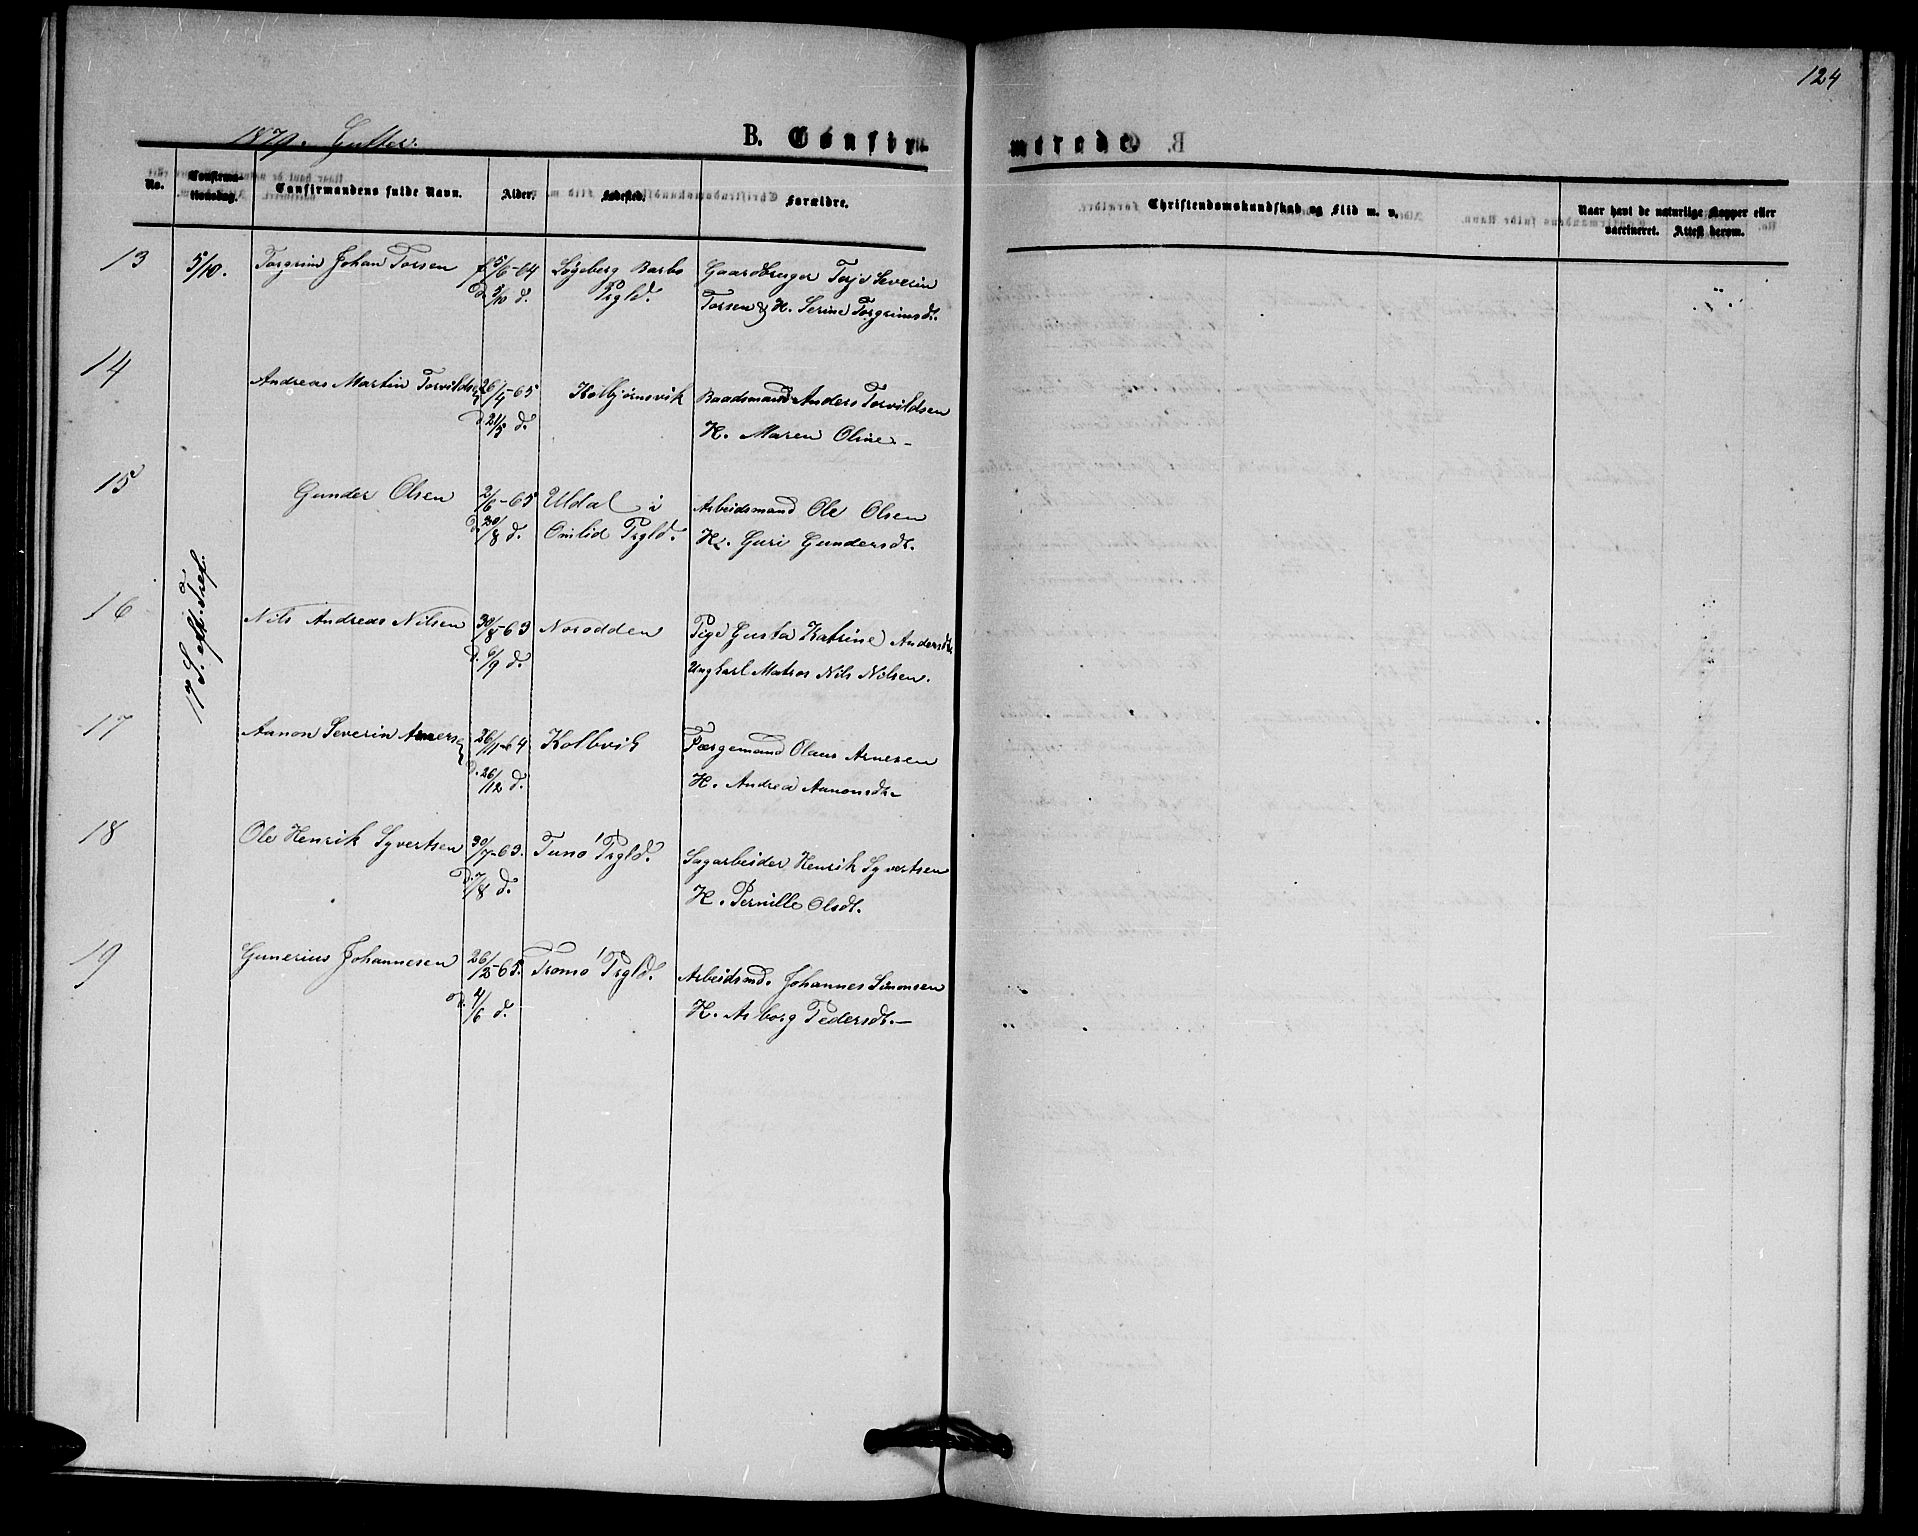 124
1879. Gutter.
B. Confirmerede.
No.
Confirmationsdag.
Confirmandens fulde Navn.
Alder.
Fødested.
Forældre.
Christendomskundskab og Flid m. v.
Naar havt de naturlige Kopper eller
vaccineret. Attest derom.
13 5/10. Torgrim Johan Torsen f 5/6-64 Løgeberg Barbo Gaardbruger Terje Severin
D. 5/10 d. Prgld. Torsen & H. Serine Torgrimsdt.
14
Andreas Martin Torvildsen 26/4-65 Kolbjørnsvik Baadsmand Anders Torvildsen
d. 21/5 d. H. Maren Oline -
15
Gunder Olsen 2/6-65 Uldal i Arbeidsmand Ole Olsen
D. 20/8 d. Omlid Prgld. H. Guri Gundersdt.
17 S. eft. Tref.
16
Nils Andreas Nilsen 30/8-63 Norodden Pige Gusta Katrine Andersdt.
D. 6/9 d. Ungkarl Matros Nils Nilsen.
17
Aanon Severin Arnesen 26/11-64 Kolbvik Færgemand Olaus Arnesen
d. 26/12 d. H. Andrea Aanonsdt.
18
Ole Henrik Syvertsen 30/7-63. Tuno Prgld. Sagarbeider Henrik Syvertsen
D. 7/8 d. H. Pernille Olsdt.
19
Gunerius Johannesen 26/2-65. Tromø Prgld. Arbeidsmd. Johannes Simonsen
D. 4/6 d. H. Asborg Pedersdt.